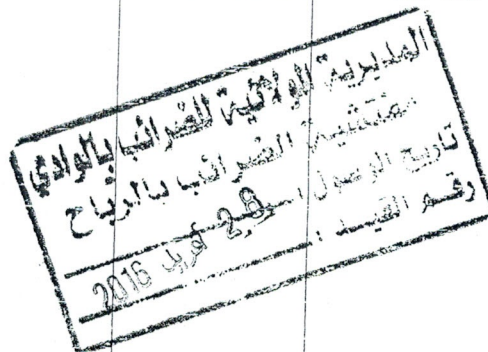 المديرية الولائية للضرائب بالوادي
مفتشية الضرائب بالرباح
تاريخ الوصول : 28 أفريل 2016
رقم القيد :